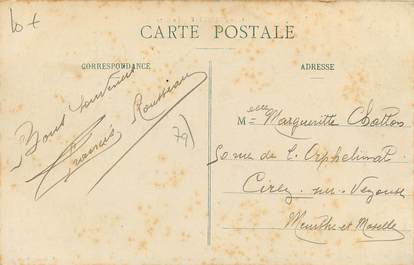 10 €
CARTE POSTALE
CORRESPONDANCE
ADRESSE
Bons souvenirs
Francis Rousseau
79)
Melle Margueritte
de l'Orphelinat
Cirey-sur-Vezouse
Meurthe-et-Moselle